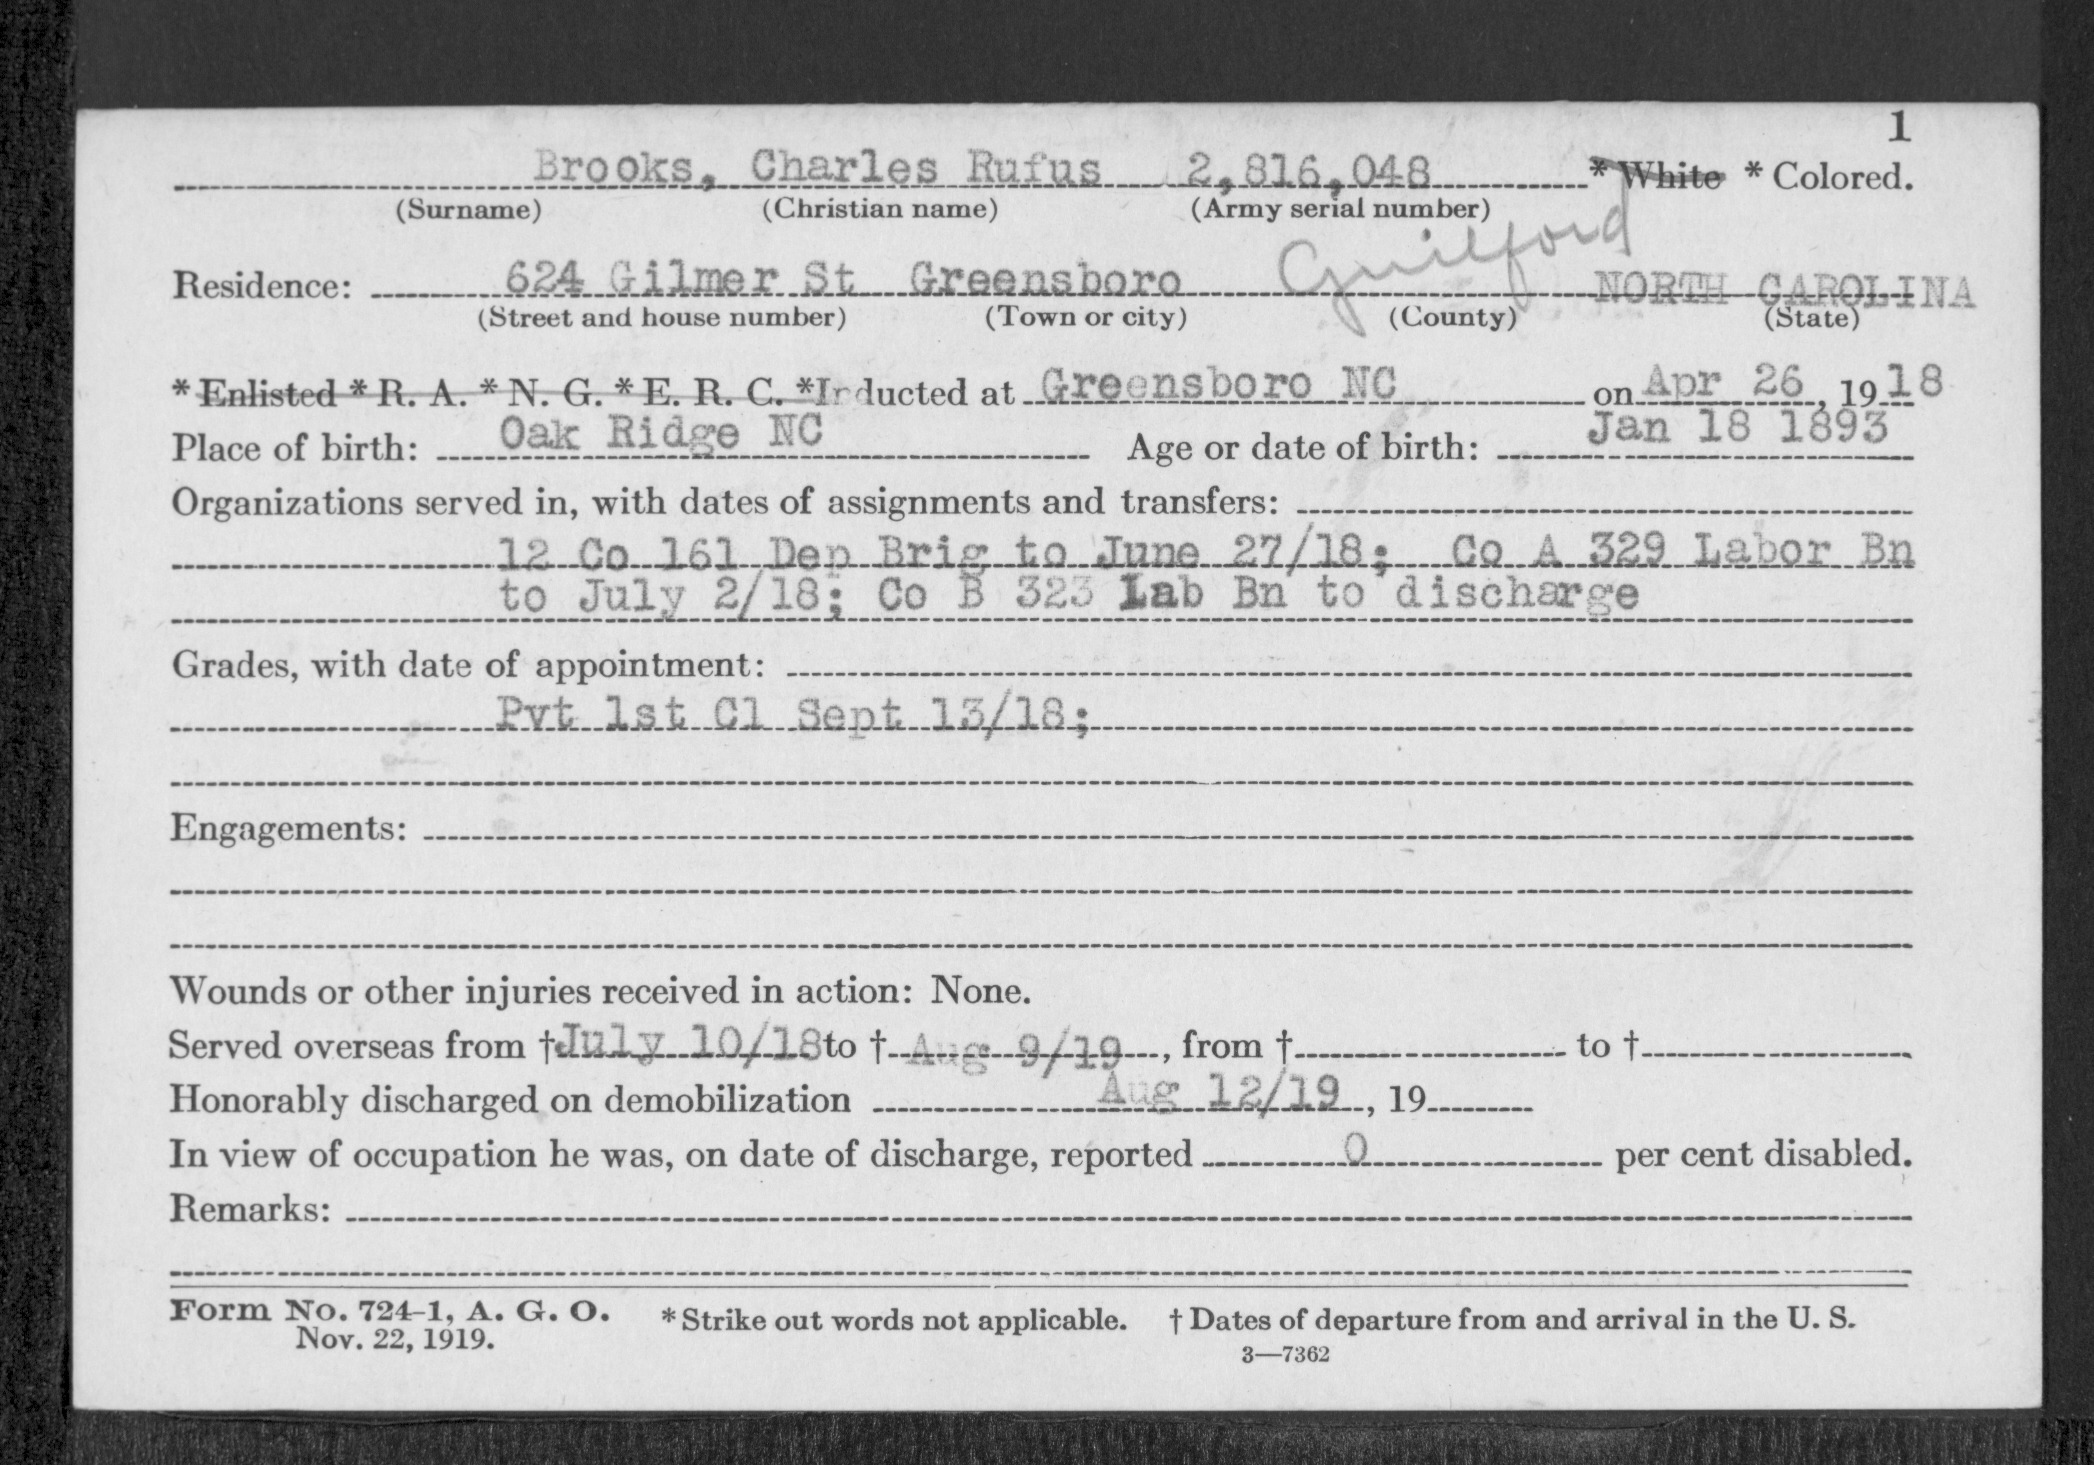 1
Brooks, Charles Rufus 2,816,048 * White * Colored.
(Surname) (Christian name) (Army serial number)
Residence: 624 Gilmer St Greensboro Guilford NORTH CAROLINA
(Street and house number) (Town or city) (County) (State)
* Enlisted * R. A. * N. G. * E. R. C. *Inducted at Greensboro NC on Apr 26, 1918
Place of birth: Oak Ridge NC Age or date of birth: Jan 18 1893
Organizations served in, with dates of assignments and transfers:
12 Co 161 Dep Brig to June 27/18; Co A 329 Labor Bn
to July 2/18; Co B 323 Lab Bn to discharge
Grades, with date of appointment:
Pvt 1st Cl Sept 13/18;
Engagements:
Wounds or other injuries received in action: None.
Served overseas from † July 10/18 to † Aug 9/19, from † to †
Honorably discharged on demobilization Aug 12/19, 19
In view of occupation he was, on date of discharge, reported 0 per cent disabled.
Remarks:
Form No. 724-1, A. G. O. * Strike out words not applicable. † Dates of departure from and arrival in the U. S.
Nov. 22, 1919.
3—7362